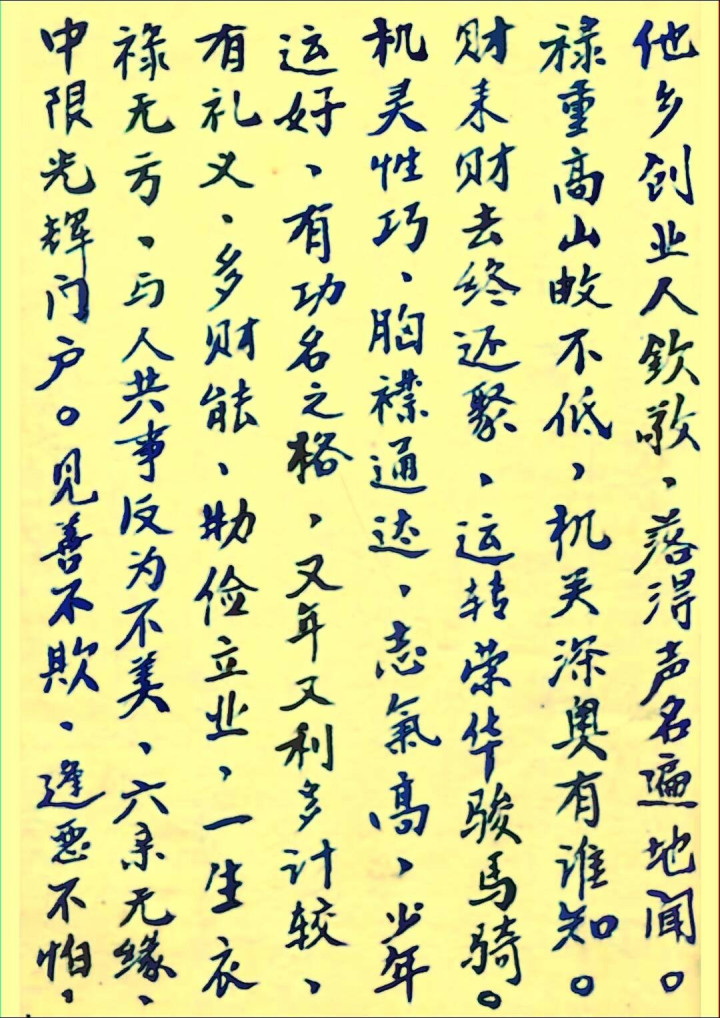 他乡创业人钦敬、落得声名遍地闻。
禄重高山畝不低，机关深奥有谁知。
财来财去终还聚、运转荣华骏马骑。
机灵性巧、胸襟通达、志氣高、少年
运好、有功名之格、又年又利多计较、
有礼义、多财能、勤俭立业，一生衣
禄无亏、与人共事反为不美、六亲无缘、
中限光辉门户。见善不欺、逢恶不怕，